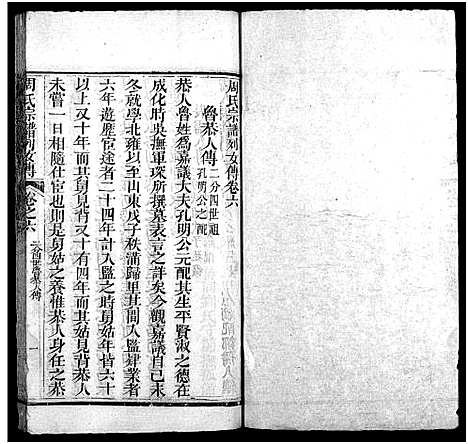 周氏宗譜列女傳卷六
魯恭人傳 二分四世祖
孔明公之配
恭人魯姓爲嘉議大夫孔明公元配其生平賢淑之德在
成化時吳撫軍琛所撰墓表言之詳矣今觀嘉議自己未
冬就學北雍以至山東戊子秩滿歸里其間入監肄業者
六年遊歷宦途者二十四年計入監之時舅姑年皆六十
以上又十年而其舅見背又十有四年而其姑見背恭人
未嘗一日相隨仕宦也則是舅姑之養惟恭人身任之恭
周氏宗譜列女傳
卷之六
二分四世魯恭人傳
一